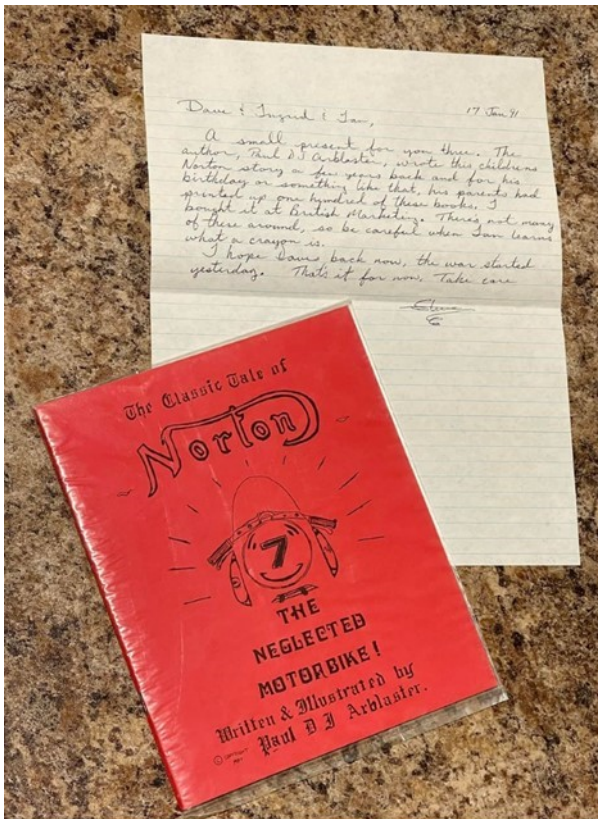 Dave & Ingrid & Ian,
17 Jan 91
A small present for you three. The
author, Paul DJ Arblaster, wrote this childrens
Norton story a few years back and for his
birthday or something like that, his parents had
printed up one hundred of these books. I
bought it at British Marketing. There's not many
of these around, so be careful when Ian learns
what a crayon is.
I hope Dave's back now, the war started
yesterday. That's it for now. Take care
The Classic Tale of
Norton
7
THE
NEGLECTED
MOTORBIKE!
Written & Illustrated by
Paul D J Arblaster.
© COPYRIGHT